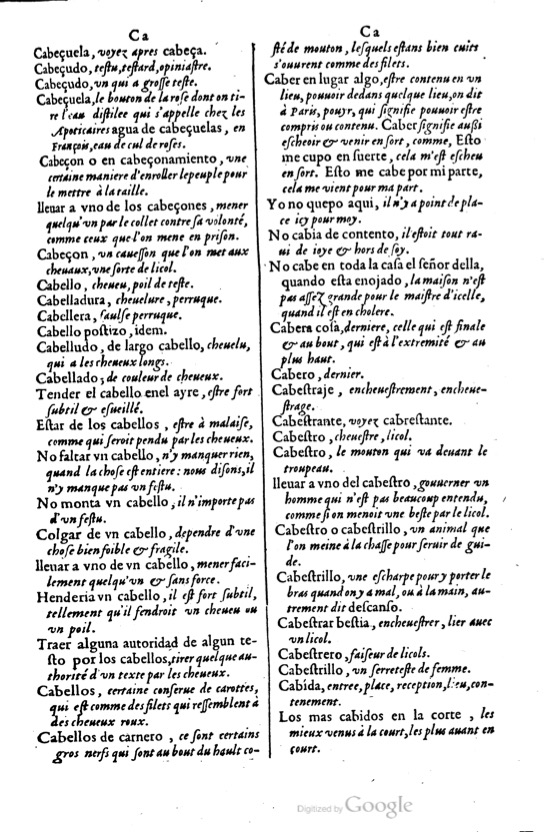 Ca
Cabeçuela, voyez apres cabeça.
Cabeçudo, testu, testard, opiniastre.
Cabeçudo, vn qui a grosse teste.
Cabeçuela, le bouton de la rose dont on ti-
re l'eau distilee qui s'appelle chez les
Apoticaires agua de cabeçuelas, en
François, eau de cul de roses.
Cabeçon o en cabeçonamiento, vne
certaine maniere d'enroller le peuple pour
le mettre à la taille.
lleuar a vno de los cabeçones, mener
quelqu'vn par le collet contre sa volonté,
comme ceux que l'on mene en prison.
Cabeçon, vn cauesson que l'on met aux
cheuaux, vne sorte de licol.
Cabello, cheueu, poil de teste.
Cabelladura, cheuelure, perruque.
Cabellera, faulse perruque.
Cabello postizo, idem.
Cabelludo, de largo cabello, cheuelu,
qui a les cheueux longs.
Cabellado, de couleur de cheueux.
Tender el cabello enel ayre, estre fort
subtil & esueillé.
Estar de los cabellos, estre à malaise,
comme qui seroit pendu par les cheueux.
No faltar vn cabello, n'y manquer rien,
quand la chose est entiere: nous disons, il
n'y manque pas vn festu.
No monta vn cabello, il n'importe pas
d'vn festu.
Colgar de vn cabello, dependre d'vne
chose bien foible & fragile.
lleuar a vno de vn cabello, mener faci-
lement quelqu'vn & sans force.
Henderia vn cabello, il est fort subtil,
tellement qu'il fendroit vn cheueu ou
vn poil.
Traer alguna autoridad de algun te-
sto por los cabellos, tirer quelque au-
thorité d'vn texte par les cheueux.
Cabellos, certaine conserue de carottes,
qui est comme des filets qui ressemblent à
des cheueux roux.
Cabellos de carnero, ce sont certains
gros nerfs qui sont au bout du hault co-
Ca
sté de mouton, lesquels estans bien cuits
s'ouurent comme des filets.
Caber en lugar algo, estre contenu en vn
lieu, pouuoir dedans quelque lieu, on dit
à Paris, pouyr, qui signifie pouuoir estre
compris ou contenu. Caber signifie aussi
escheoir & venir en sort, comme, Esto
me cupo en suerte, cela m'est escheu
en sort. Esto me cabe por mi parte,
cela me vient pour ma part.
Yo no quepo aqui, il n'y a point de pla-
ce icy pour moy.
No cabia de contento, il estoit tout ra-
ui de ioye & hors de soy.
No cabe en toda la casa el señor della,
quando esta enojado, la maison n'est
pas assez grande pour le maistre d'icelle,
quand il est en cholere.
Cabera cosa, derniere, celle qui est finale
& au bout, qui est à l'extremité & au
plus haut.
Cabero, dernier.
Cabestraje, encheuestrement, encheue-
strage.
Cabestrante, voyez cabrestante.
Cabestro, cheuestre, licol.
Cabestro, le mouton qui va deuant le
troupeau.
lleuar a vno del cabestro, gouuerner vn
homme qui n'est pas beaucoup entendu,
comme si on menoit vne beste par le licol.
Cabestro o cabestrillo, vn animal que
l'on meine à la chasse pour seruir de gui-
de.
Cabestrillo, vne escharpe pour y porter le
bras quand on y a mal, ou à la main, au-
trement dit descanso.
Cabestrar bestia, encheuestrer, lier auec
vn licol.
Cabestrero, faiseur de licols.
Cabestrillo, vn serreteste de femme.
Cabida, entree, place, reception, lieu, con-
tenement.
Los mas cabidos en la corte, les
mieux venus à la court, les plus auant en
court.
Digitized by Google